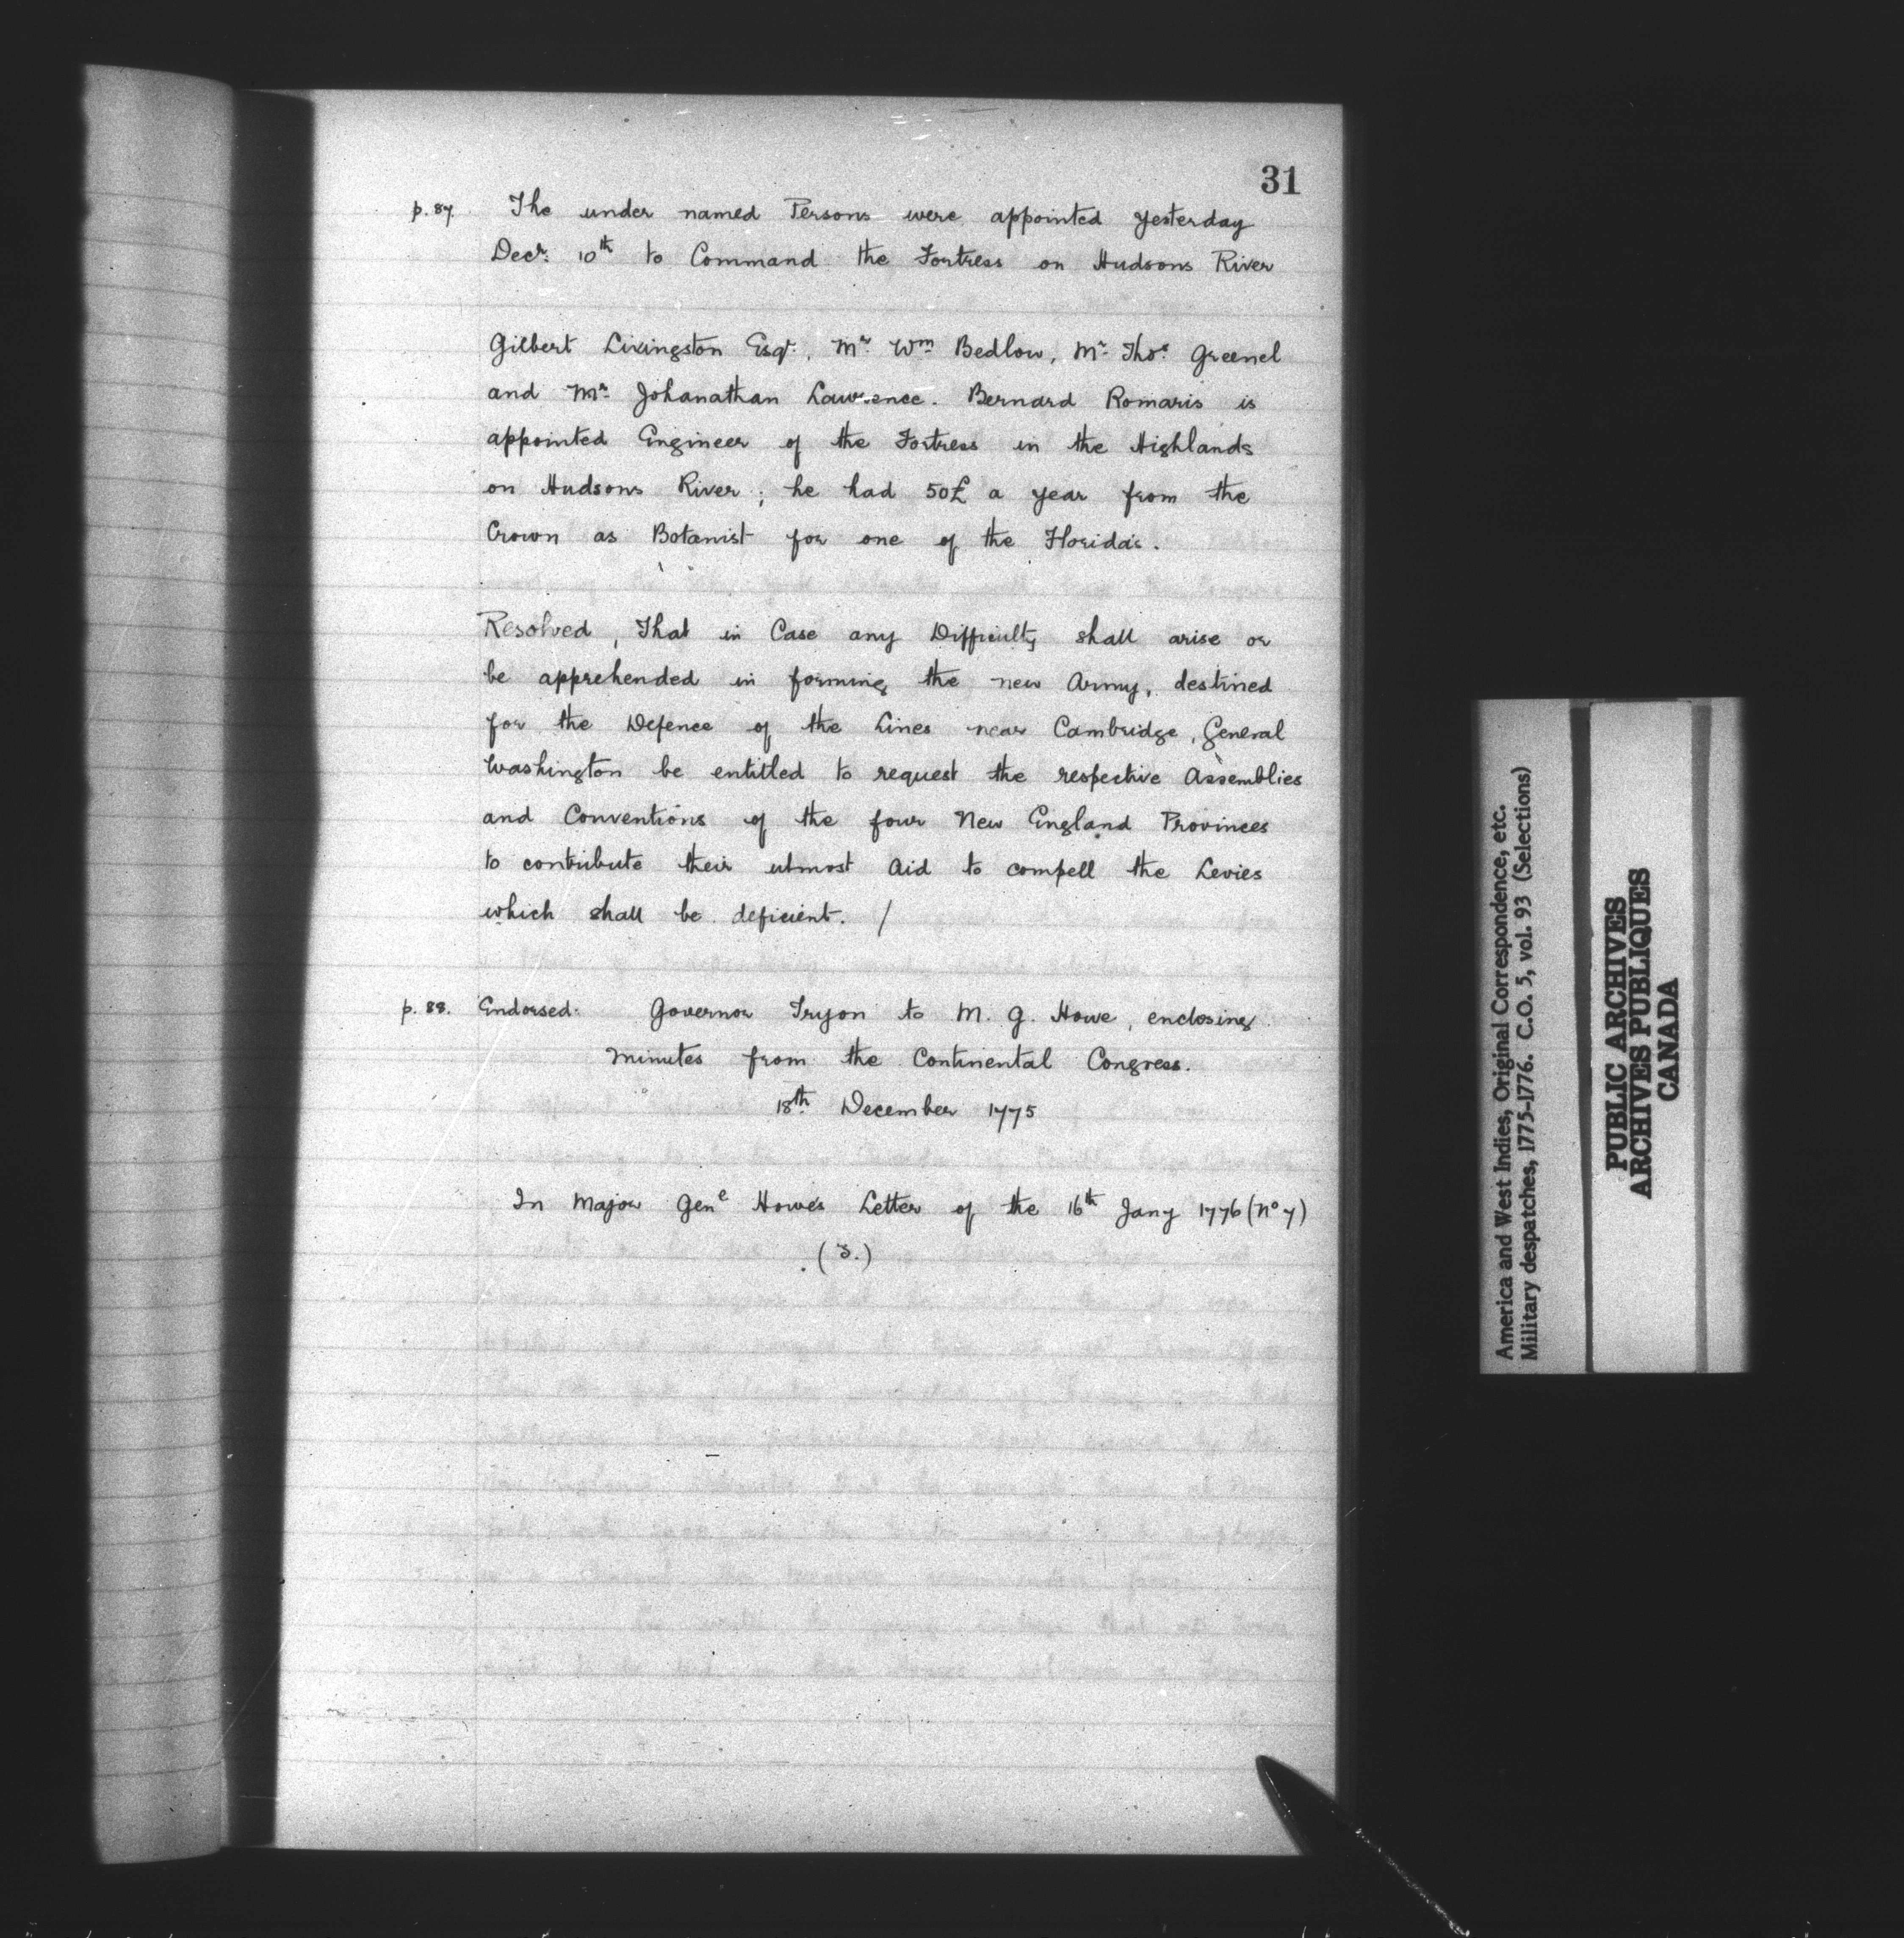 31
p. 87. The under named Persons were appointed yesterday
Decr. 10th to Command the Fortress on Hudsons River
Gilbert Livingston Esqr., Mr. Wm Bedlow, Mr. Thos. Greenel
and Mr. Johanathan Lawrence. Bernard Romaris is
appointed Engineer of the Fortress in the Highlands
on Hudsons River; he had 50£ a year from the
Crown as Botanist for one of the Florida's.
Resolved, That in Case any Difficulty shall arise or
be apprehended in forming the new Army, destined
for the Defence of the Lines near Cambridge, General
Washington be entitled to request the respective Assemblies
and Conventions of the four New England Provinces
to contribute their utmost Aid to compell the Levies
which shall be deficient. /
p. 88. Endorsed: Governor Tryon to M. G. Howe, enclosing
Minutes from the Continental Congress.
18th December 1775
In Major Genl Howe's Letter of the 16th Jany 1776 (No 7)
America and West Indies, Original Correspondence, etc.
Military despatches, 1775-1776. C.O. 5, vol. 93 (Selections)
PUBLIC ARCHIVES
ARCHIVES PUBLIQUES
CANADA